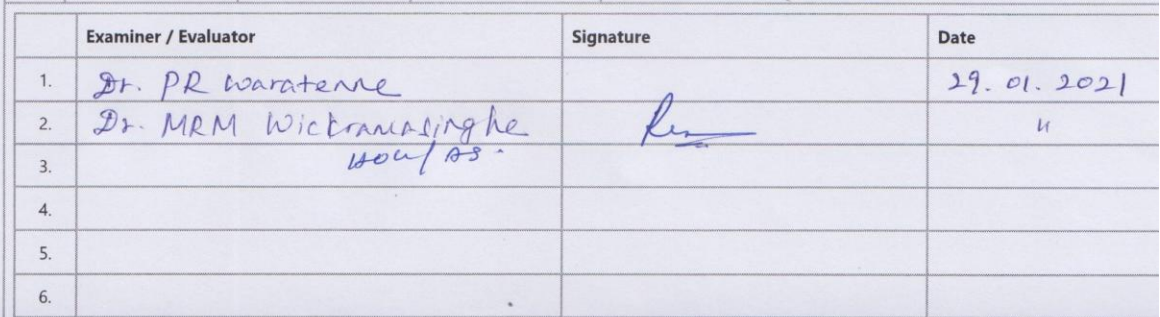 Examiner / Evaluator Signature Date
1. Dr. PR Waratenne 29.01.2021
2. Dr. MRM Wickramasinghe "
3.
4.
5.
6.